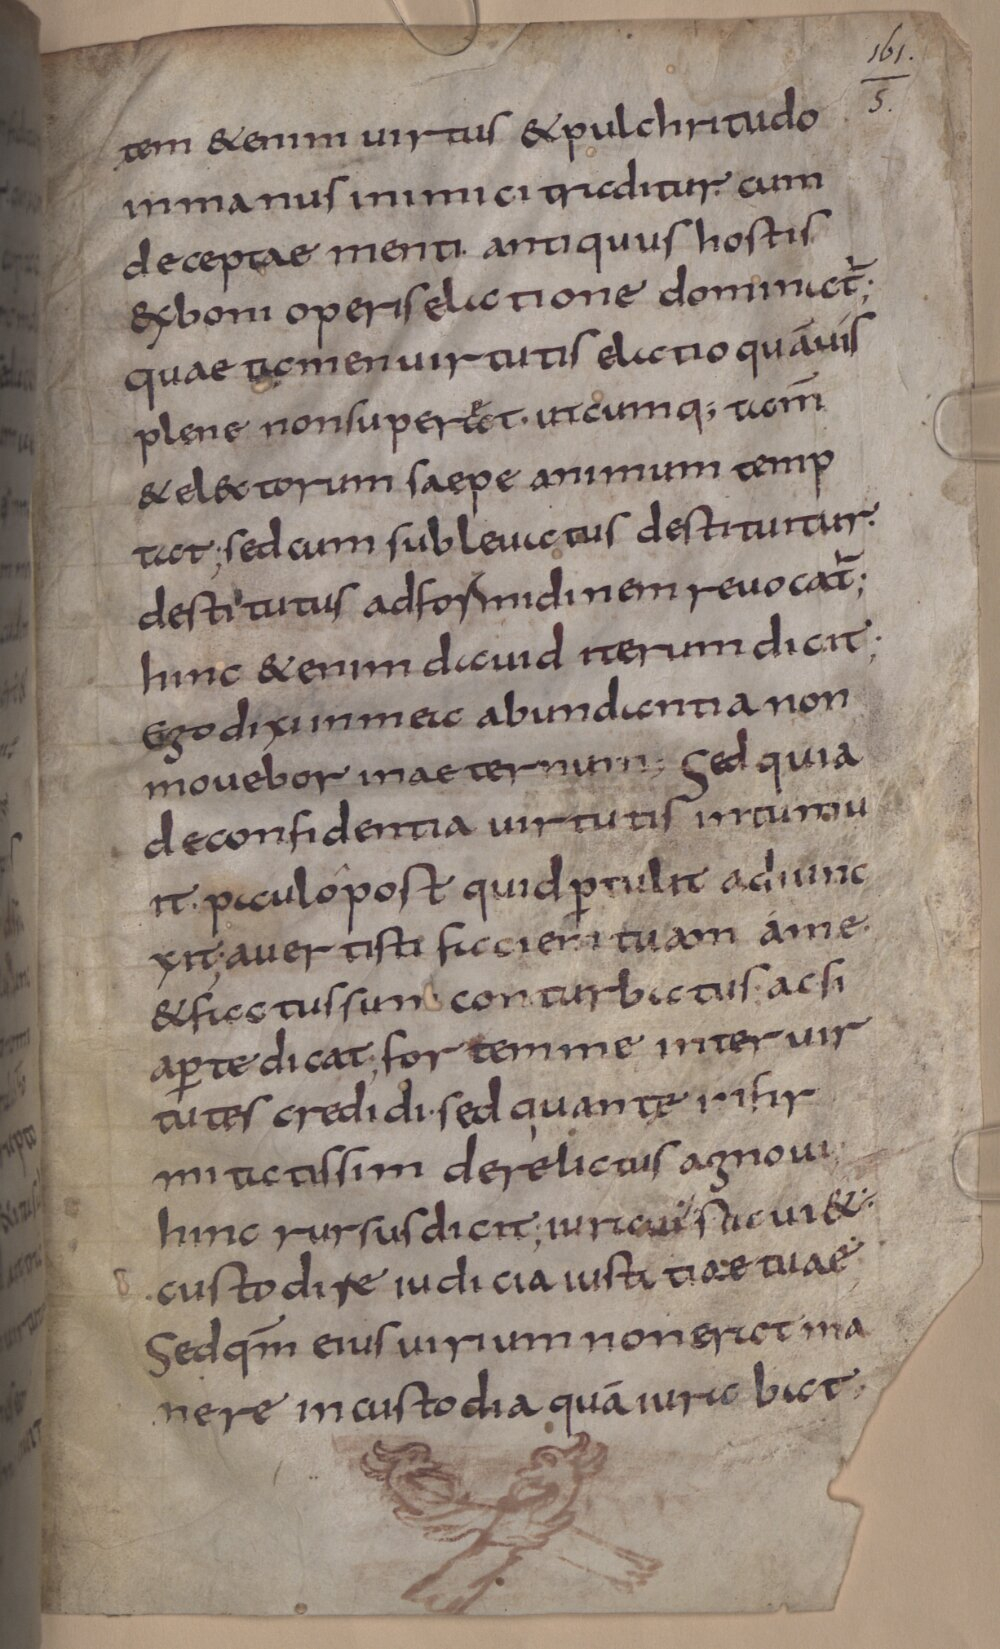 161.
5.
tem &enim uirtus &pulchritudo
inmanus inimici traditur. cum
deceptae menti. antiquus hostis
exboni operis elatione dominat̄;
quae tamen uirtutis elatio quāuis
plene nonsuperat. utcumq; tam̄
& electorum saepe animum temp
tat; sedcum subleuatus destituitur.
destitutus adformidinem reuocat̄;
hinc &enim dauid iterum dicit;
Ego dixi inmea abundantia non
mouebor inaeternum; Sed quia
deconfidentia uirtutis intumu
it. paulo post quid ꝑtulit adiunc
xit; auertisti faciem tuam áme.
&factus sum conturbatus. acsi
aꝑte dicat; fortem me inter uir
tutes credidi. sed quante infir
mitatissim derelictus agnoui
hinc rursus dicit; iuraui statui &
custodire iudicia iustitiae tuae
Sed qm̄ eius uirium non erat ma
nere incustodia quā iurabat;